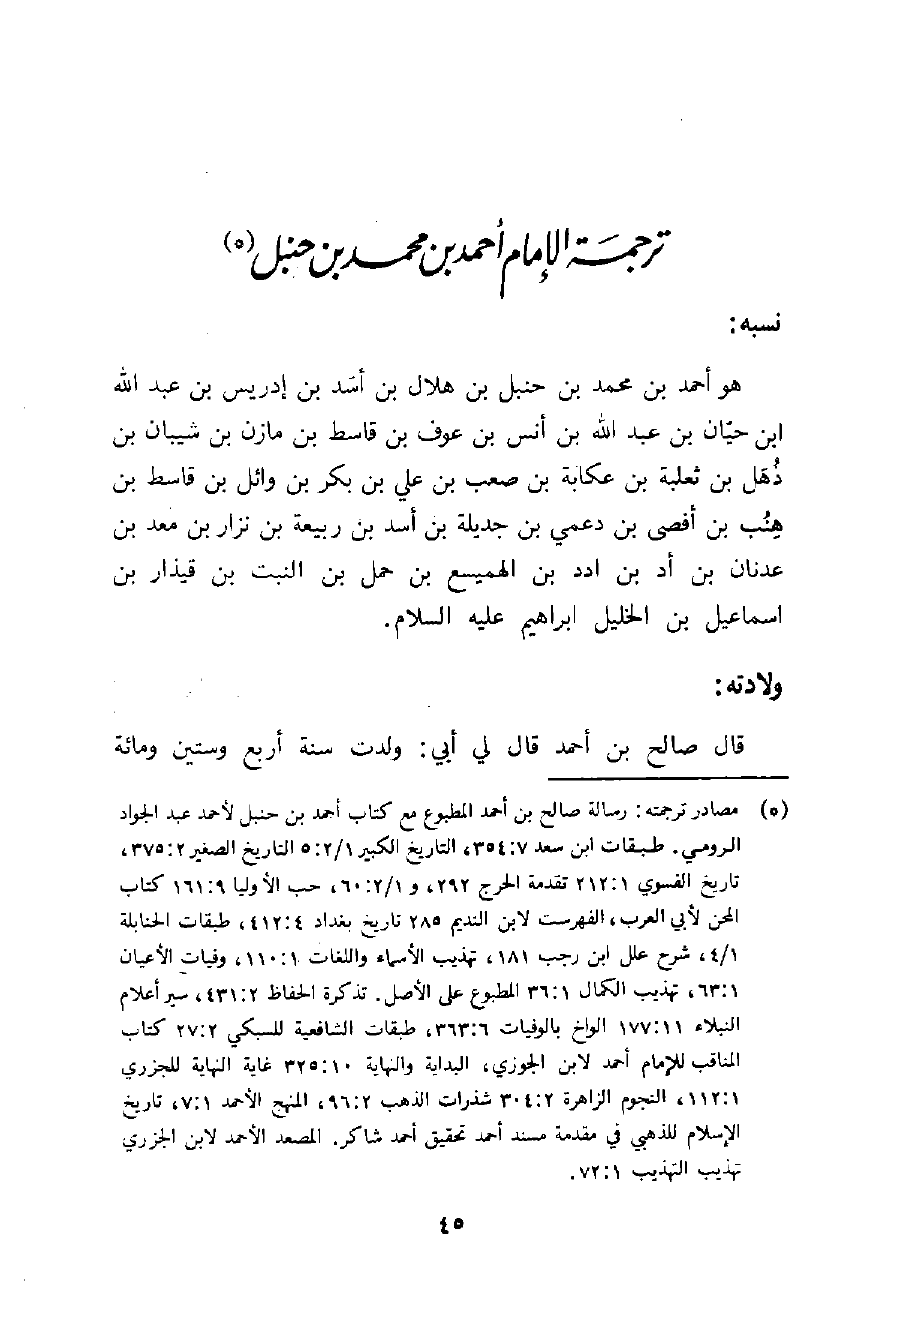 ترجمة الإمام أحمد بن محمد بن حنبل (٥)
نسبه:
هو أحمد بن محمد بن حنبل بن هلال بن أسَد بن إدريس بن عبد الله
ابن حيّان بن عبد الله بن أنس بن عوف بن قاسط بن مازن بن شيبان بن
ذُهَل بن ثعلبة بن عكابة بن صعب بن علي بن بكر بن وائل بن قاسط بن
هِنُب بن أفصى بن دعمي بن جديلة بن أسد بن ربيعة بن نزار بن معد بن
عدنان بن أد بن ادد بن الهميسع بن حمل بن النبت بن قيذار بن
اسماعيل بن الخليل ابراهيم عليه السلام.
ولادته:
قال صالح بن أحمد قال لي أبي: ولدت سنة أربع وستين ومائة
(٥) مصادر ترجمته: رسالة صالح بن أحمد المطبوع مع كتاب أحمد بن حنبل لأحمد عبد الجواد
الرومي. طبقات ابن سعد ٧:٣٥٤، التاريخ الكبير ٢/١:٥ التاريخ الصغير ٢:٣٧٥،
تاريخ الفسوي ١:٢١٢ تقدمة الجرح ٢٩٢، و ٢/١:٦٠، حب الأوليا ٩:١٦١ كتاب
المحن لأبي العرب، الفهرست لابن النديم ٢٨٥ تاريخ بغداد ٤:٤١٢، طبقات الحنابلة
٤/١، شرح علل ابن رجب ١٨١، تهذيب الأسماء واللغات ١:١١٠، وفيات الأعيان
١:٦٣، تهذيب الكمال ١:٣٦ المطبوع على الأصل. تذكرة الحفاظ ٢:٤٣١، سير أعلام
النبلاء ١١:١٧٧ الواخ بالوفيات ٦:٣٦٣، طبقات الشافعية للسبكي ٢:٢٧ كتاب
المناقب للإمام أحمد لابن الجوزي، البداية والنهاية ١٠:٣٢٥ غاية النهاية للجزري
١:١١٢، النجوم الزاهرة ٢:٣٠٤ شذرات الذهب ٢:٩٦، المنهج الأحمد ١:٧، تاريخ
الإسلام للذهبي في مقدمة مسند أحمد تحقيق أحمد شاكر. المصعد الأحمد لابن الجزري
تهذيب التهذيب ١:٧٢.
٤٥